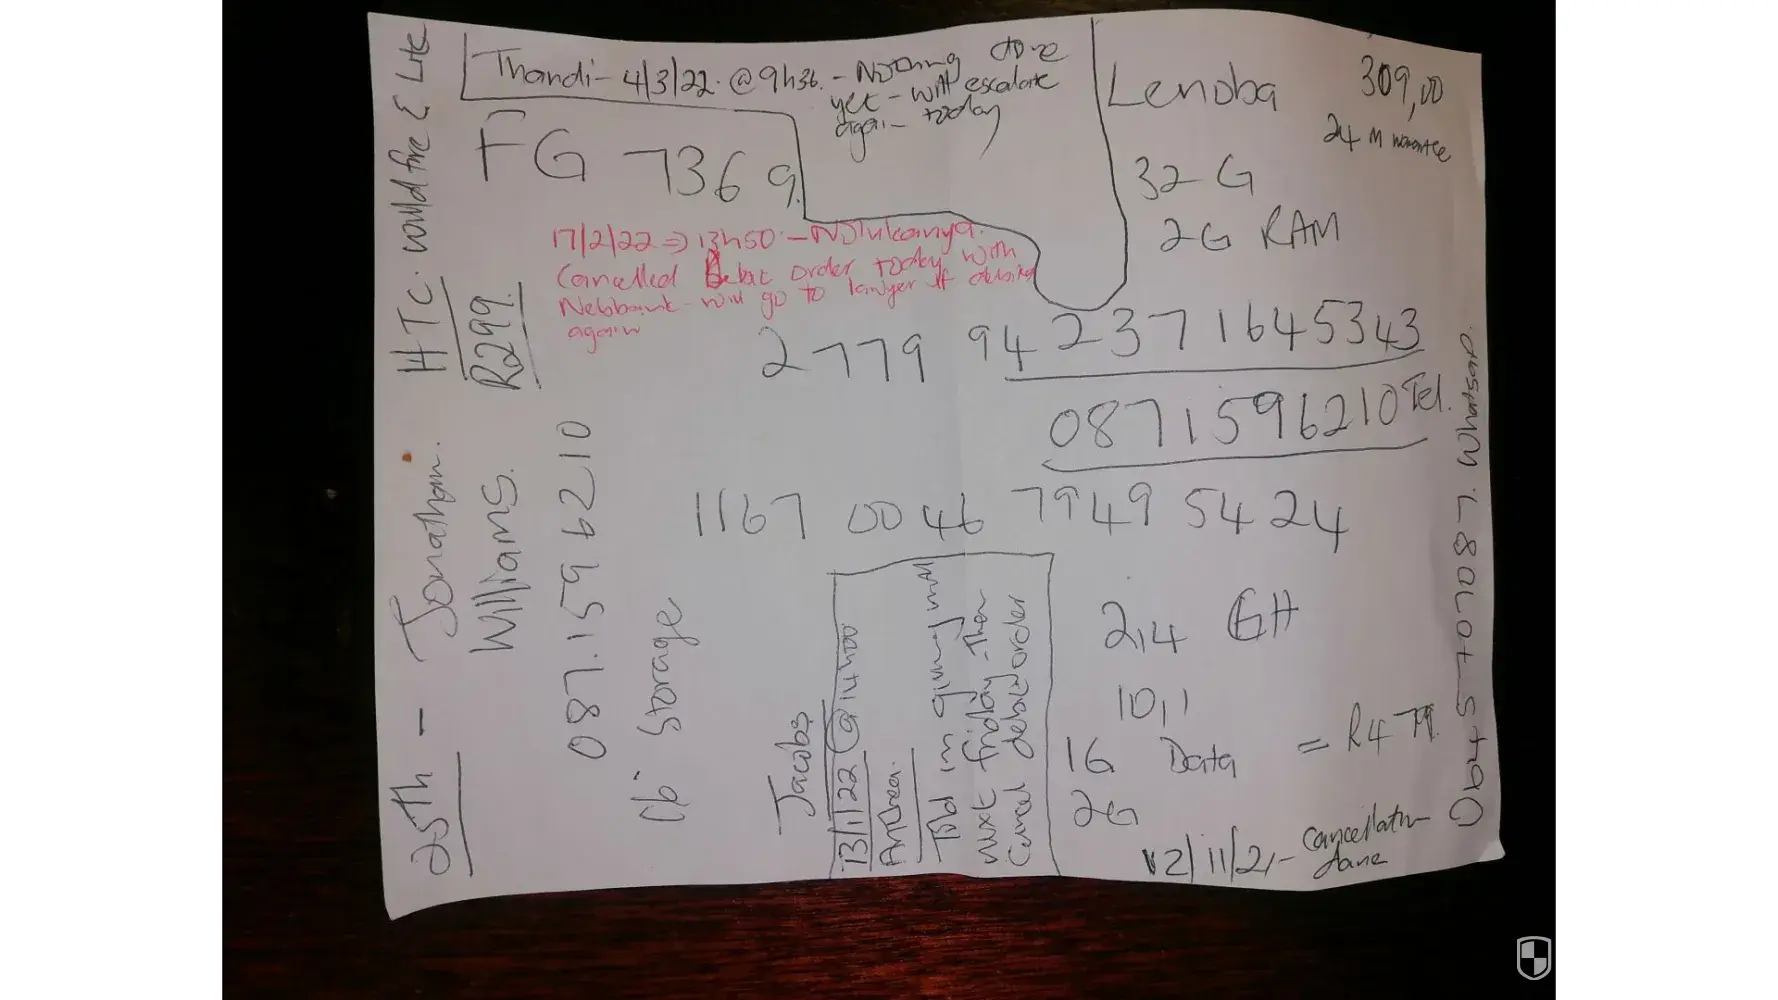 Thandi - 4/3/22 @ 9h36. - Nothing done
yet - will escalate
again today
Lenoba
309,00
24 M
32 G
2G RAM
FG 7369
17/2/22 => 13h50 - Nolukanya.
Cancelled Debit order today with
Nebbank - will go to lawyer if
again
2779 94 2371645343
0871596210 Tel.
1167 0046 7949 5424
HTC. would fire & Lite
R299.
25th - Jonathan
Williams.
087.1596210
Storage
Jacobs
13/1/22 @ 14h00
Andrea.
Told in giving
next friday - Then
Cancel debit order
2,4 GH
10,1
1G Data = R479.
2G
12/11/21 - Cancellation
done
Whatsap